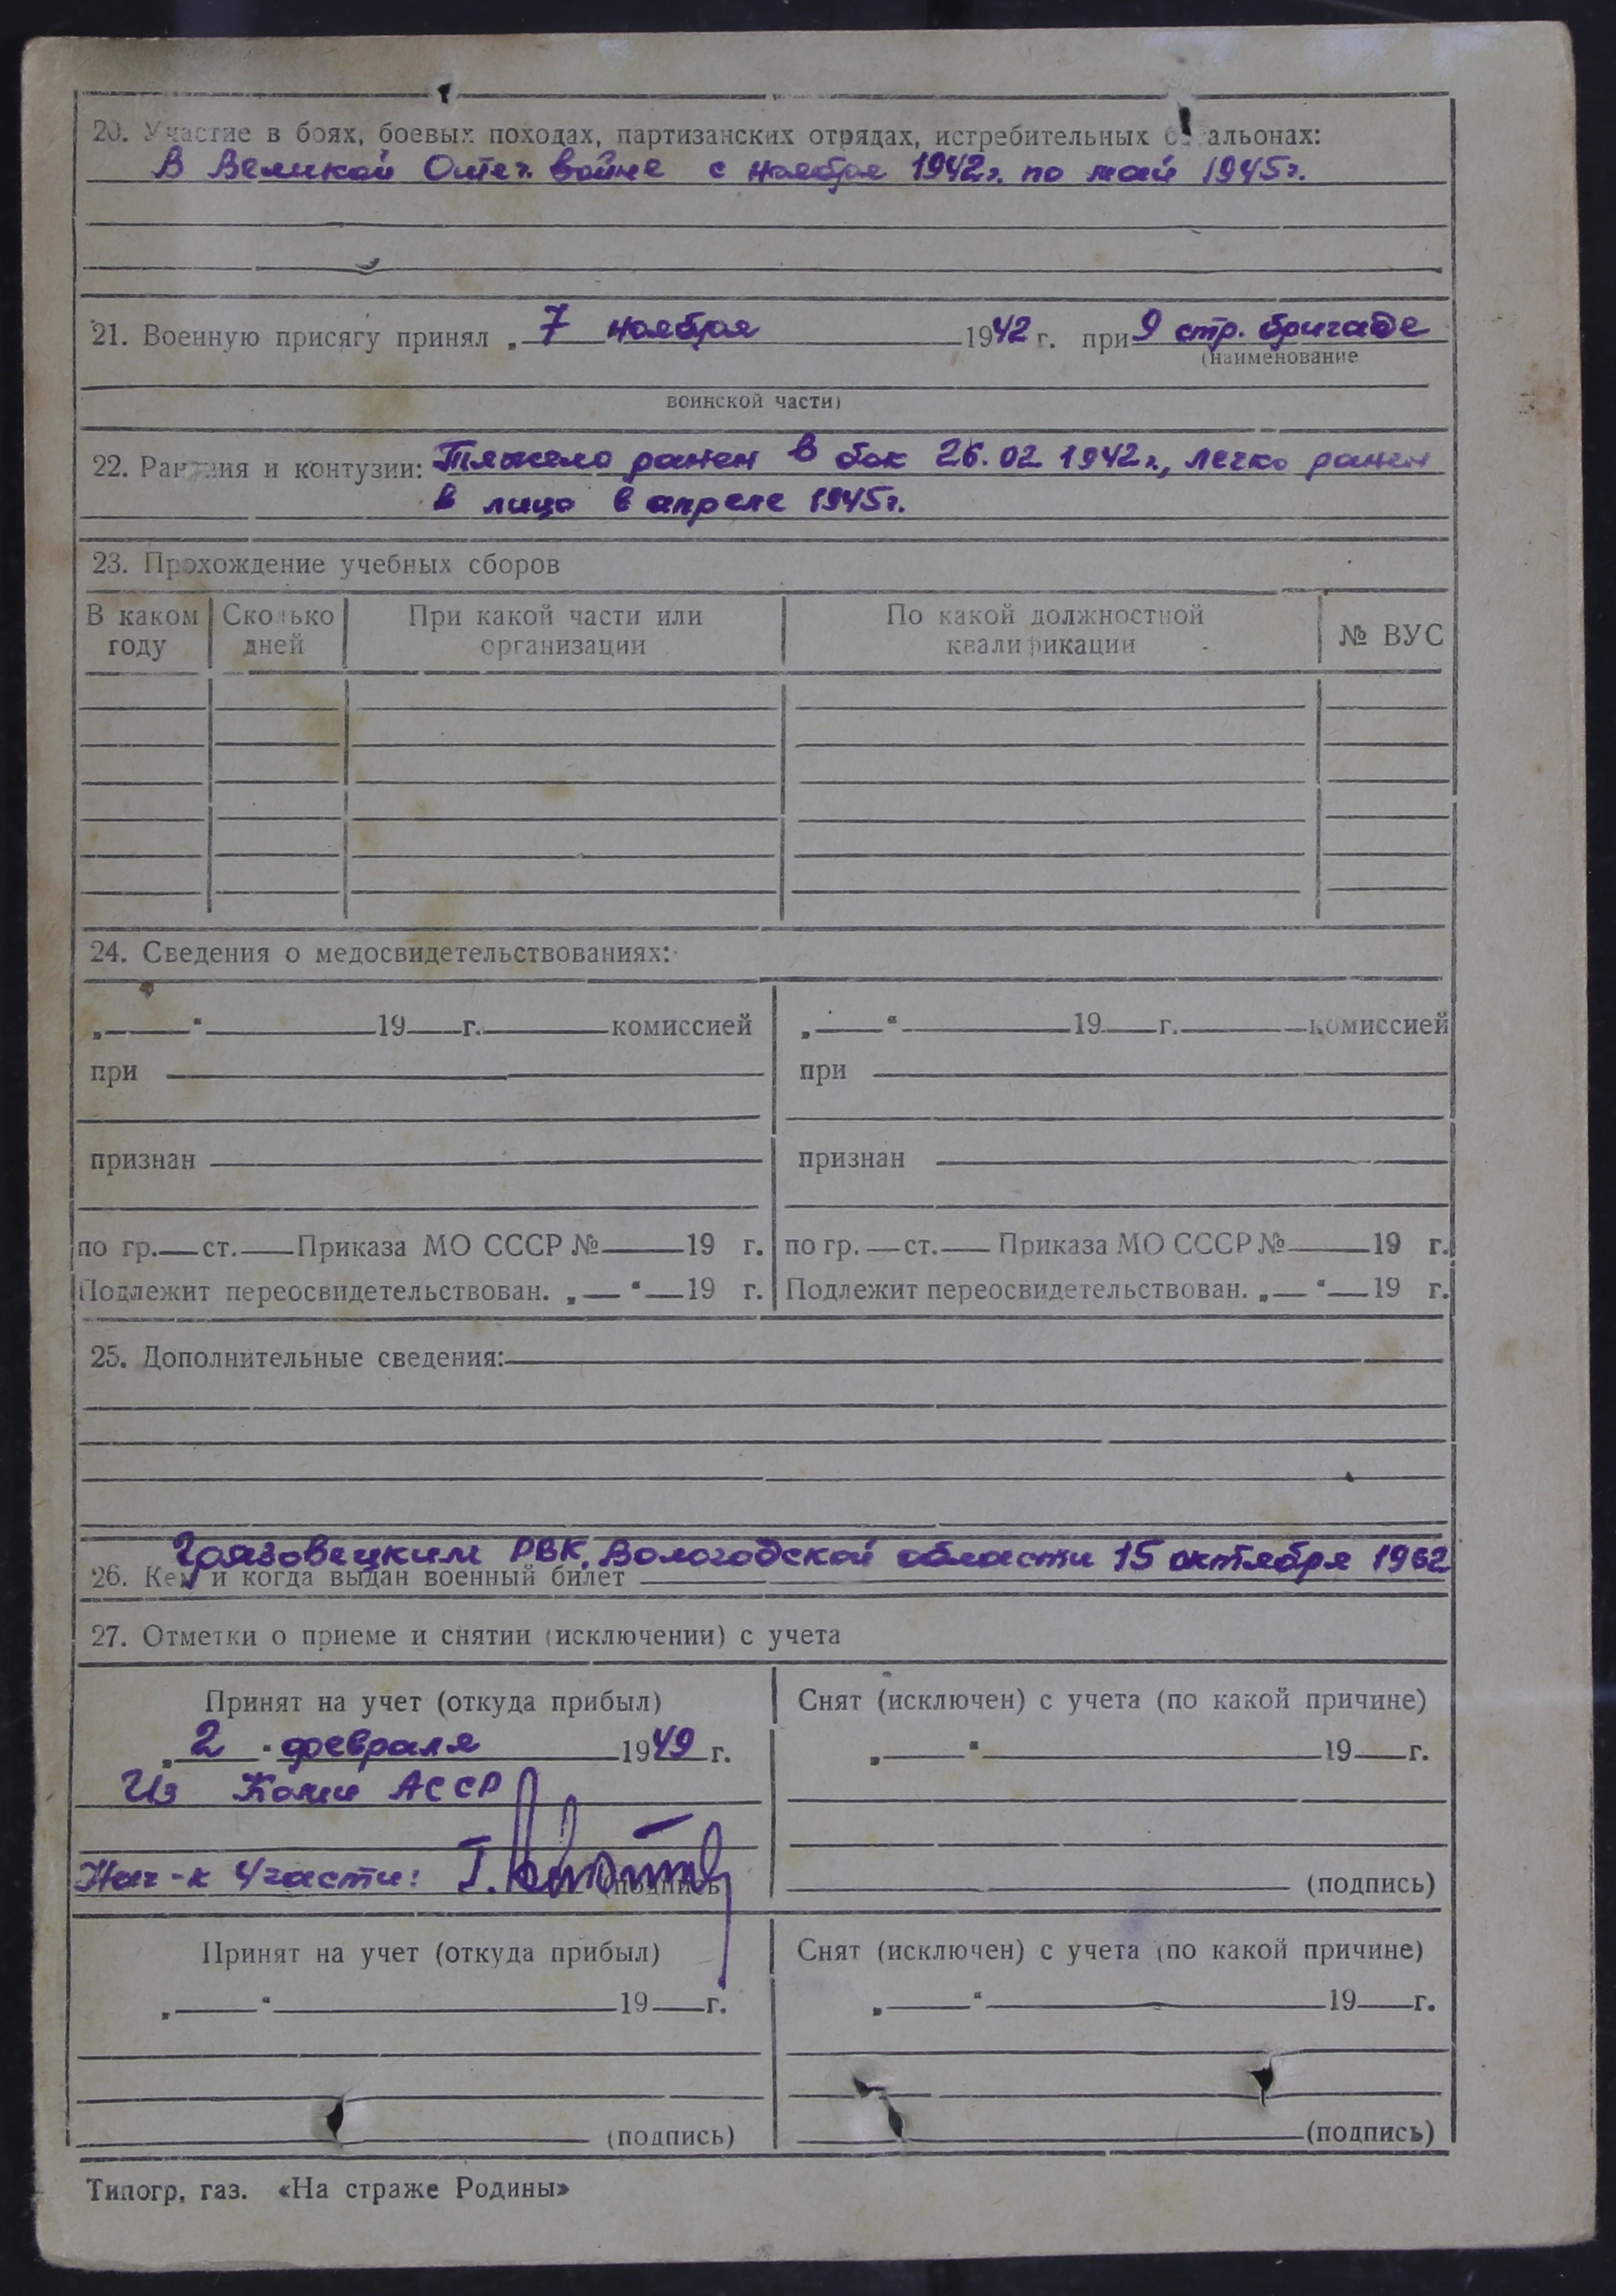 20. Участие в боях, боевых походах, партизанских отрядах, истребительных б альонах:
В Великой Отеч. войне с ноября 1942г. по май 1945г.
21. Военную присягу принял „ 7 ноября 1942 г. при 9 стр. бригаде
(наименование
воинской части)
22. Ранения и контузии: Тяжело ранен в бок 26.02 1942г., легко ранен
в лицо в апреле 1945г.
23. Прохождение учебных сборов
В каком году Сколько дней При какой части или организации По какой должностной квалификации № ВУС
24. Сведения о медосвидетельствованиях:
„ “ 19 г. комиссией „ “ 19 г. комиссией
при при
признан признан
по гр. ст. Приказа МО СССР № 19 г. по гр. ст. Приказа МО СССР № 19 г.
Подлежит переосвидетельствован. „ “ 19 г. Подлежит переосвидетельствован. „ “ 19 г.
25. Дополнительные сведения:
Грязовецким РВК, Вологодской области 15 октября 1962
26. Кем и когда выдан военный билет
27. Отметки о приеме и снятии (исключении) с учета
Принят на учет (откуда прибыл) Снят (исключен) с учета (по какой причине)
„ 2 “ февраля 1949 г. „ “ 19 г.
Из Коми АССР
Нач-к 4 части: (подпись) (подпись)
Принят на учет (откуда прибыл) Снят (исключен) с учета (по какой причине)
„ “ 19 г. „ “ 19 г.
(подпись) (подпись)
Типогр. газ. «На страже Родины»